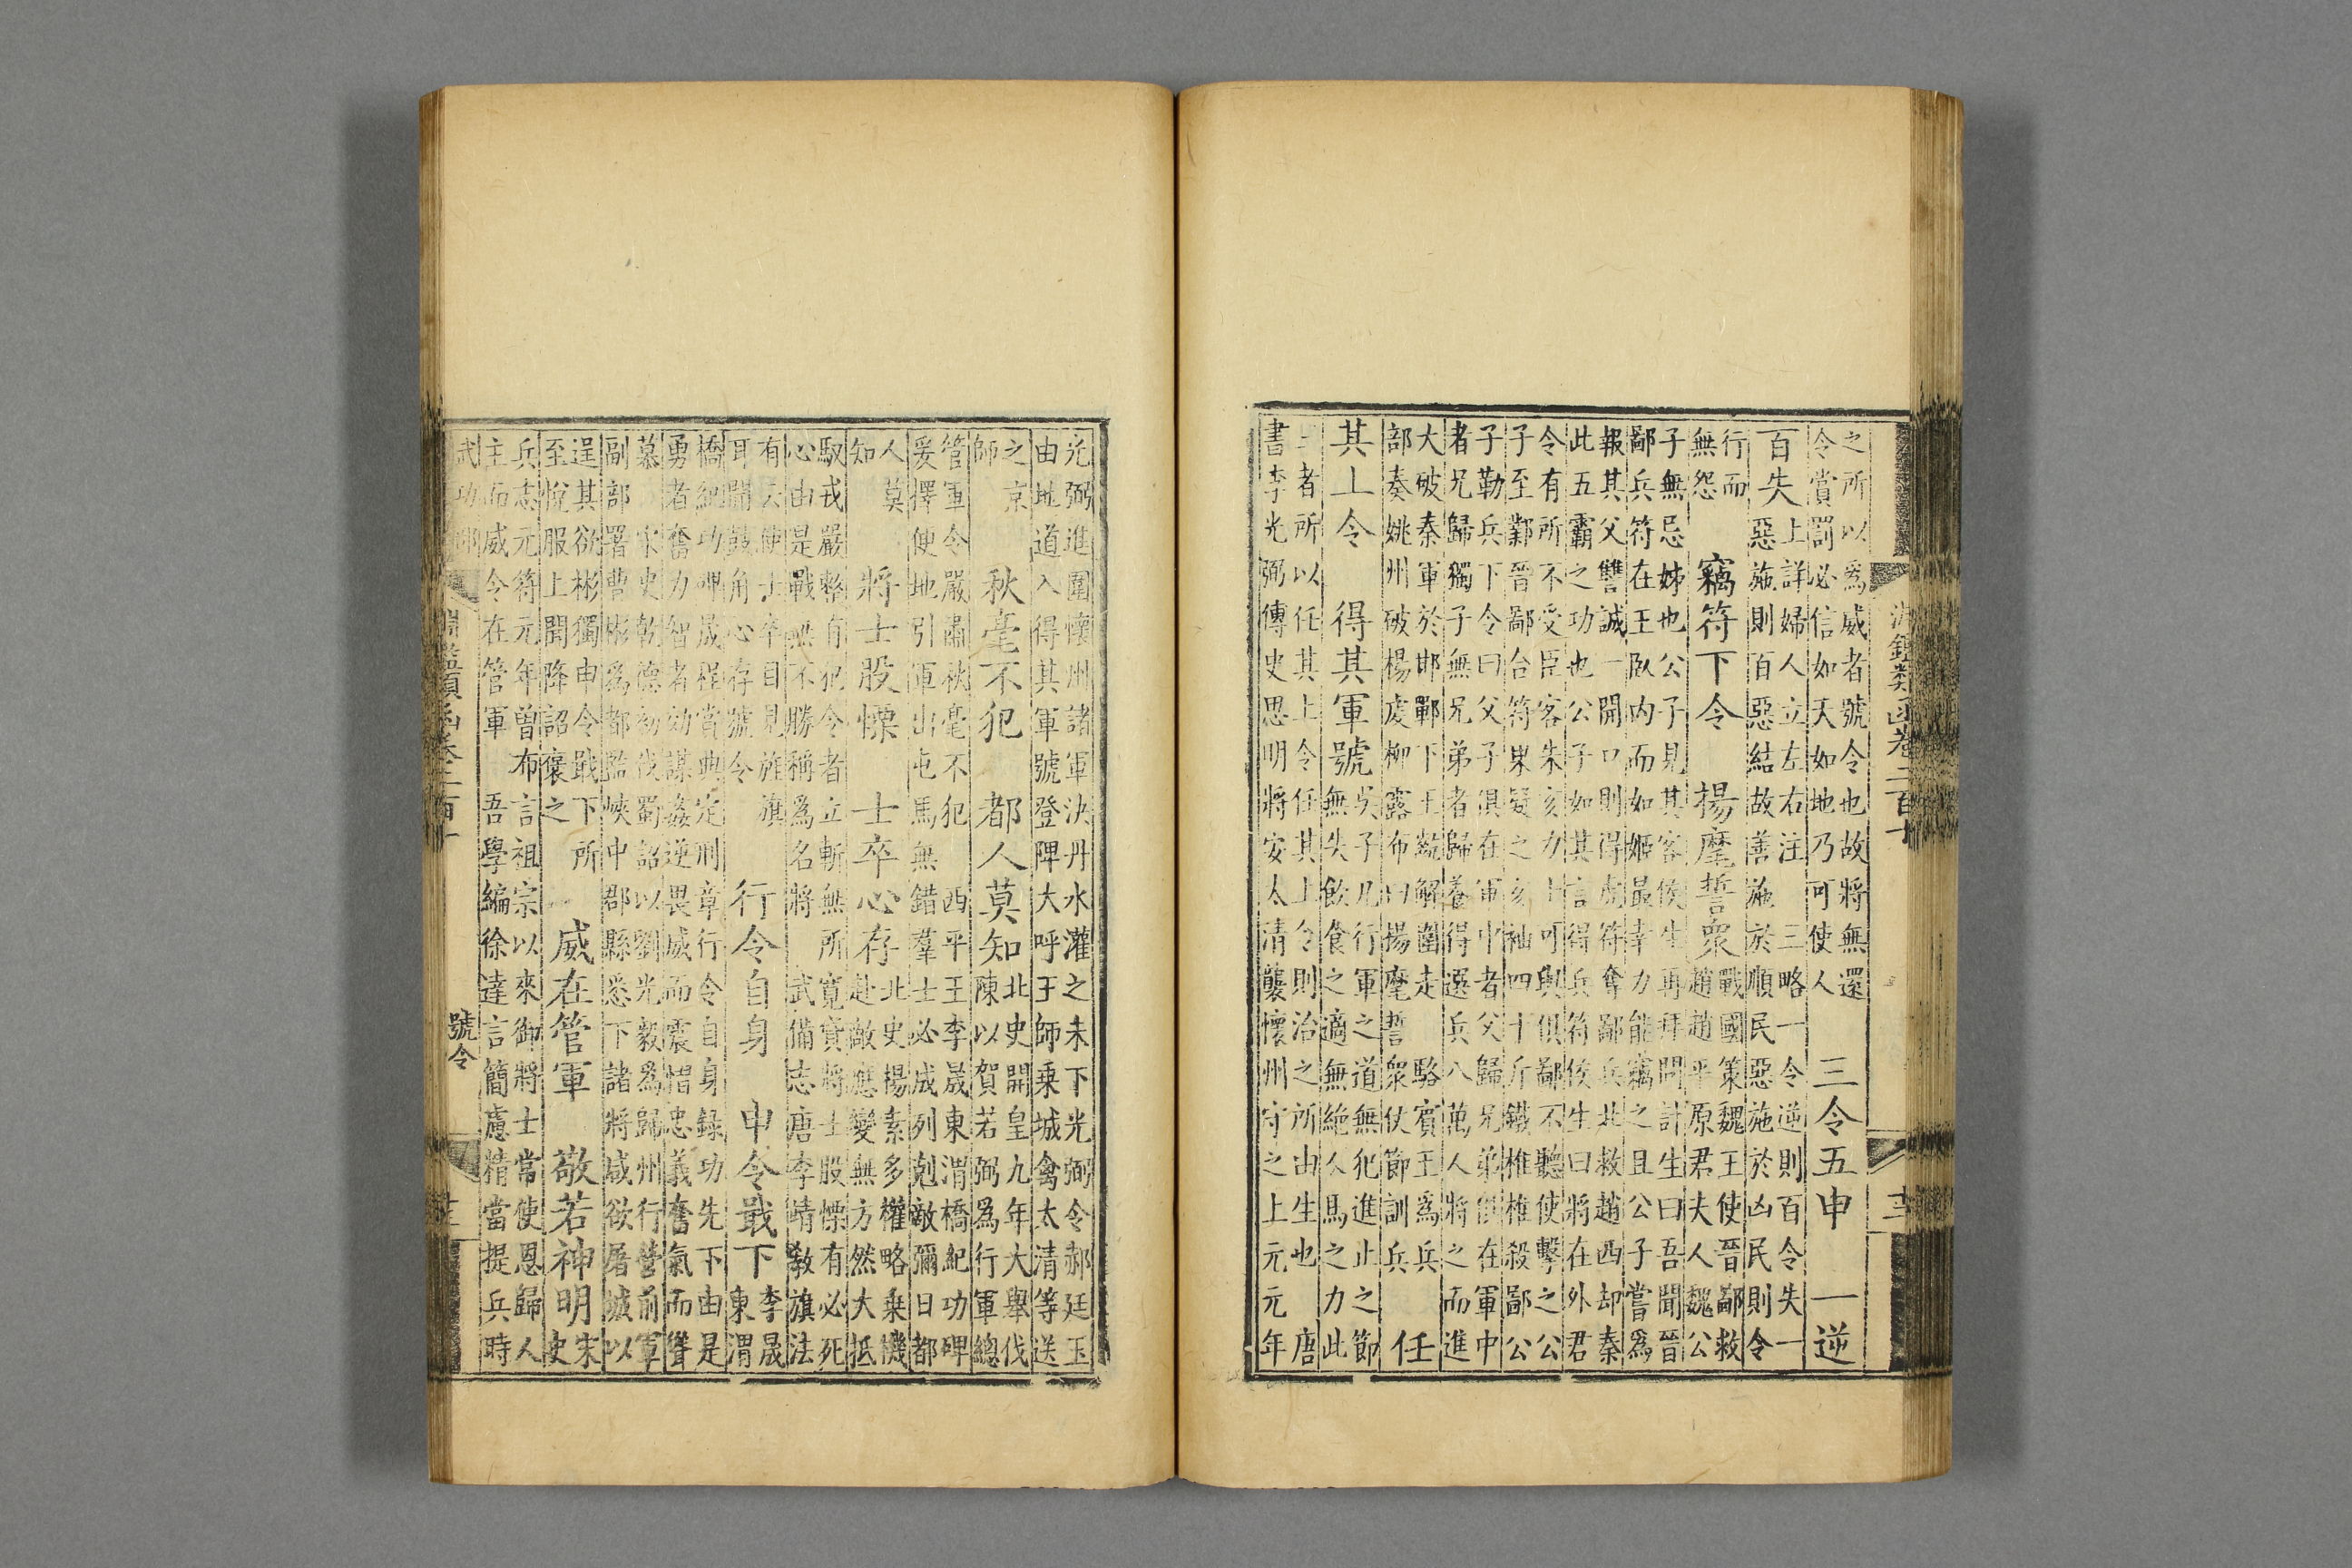 淵鑑類函卷二百十
之所以爲威者號令也故將無還
令賞罰必信如天如地乃可使人
三令五申 一逆
百失
上詳婦人立左右注 三略一令逆則百令失一
惡施則百惡結故善施於順民惡施於凶民則令
行而
無怨
竊符下令 揚麾誓衆
戰國策魏王使晉鄙救
趙趙平原君夫人魏公
子無忌姊也公子見其客侯生再拜問計生曰吾聞晉
鄙兵符在王臥内而如姬最幸力能竊之且公子嘗爲
報其父讐誠一開口則得虎符奪鄙兵北救趙西却秦
此五霸之功也公子如其言得兵符侯生曰將在外君
令有所不受臣客朱亥力士可與俱鄙不聽使擊之公
子至鄴晉鄙合符果疑之亥袖四十斤鐵椎椎殺鄙公
子勒兵下令曰父子俱在軍中者父歸兄弟俱在軍中
者兄歸獨子無兄弟者歸養得選兵八萬人將之而進
大破秦軍於邯鄲下王解圍走 駱賓王爲兵
部奏姚州破楊虔柳露布曰揚麾誓衆仗節訓兵
任
其上令 得其軍號
吳子凡行軍之道無犯進止之節
無失飲食之適無絶人馬之力此
三者所以任其上令任其上令則治之所由生也 唐
書李光弼傳史思明將安太清襲懷州守之上元元年
光弼進圍懷州諸軍決丹水灌之未下光弼令郝廷玉
由地道入得其軍號登陴大呼王師乗城禽太清等送
之京
師
秋毫不犯 都人莫知
北史開皇九年大舉伐
陳以賀若弼爲行軍總
管軍令嚴肅秋毫不犯 西平王李晟東渭橋紀功碑
爰擇便地引軍出屯馬無錯羣士必成列剋敵彌日都
人莫
知
將士股慄 士卒心存
北史楊素多權略乗機
赴敵應變無方然大抵
馭戎嚴整有犯令者立斬無所寬貸將士股慄有必死
心由是戰無不勝稱爲名將 武備志唐李靖教旗法
有云使士卒目見旌旗
耳聞鼓角心存號令
行令自身 申令戢下
李晟
東渭
橋紀功碑晟程賞典定刑章行令自身録功先下由是
勇者奮力智者効謀姦逆畏威而震惜忠義奮氣而聳
慕 宋史乾德初伐蜀詔以劉光毅爲歸州行營前軍
副部署曹彬爲都監峽中郡縣悉下諸將咸欲屠城以
逞其欲彬獨申令戢下所
至悅服上聞降詔褒之
威在管軍 敬若神明
宋
史
兵志元符元年曾布言祖宗以來御將士常使恩歸人
主而威令在管軍 吾學編徐達言簡慮精當提兵時
武功部
淵鑑類函卷二百十
號令